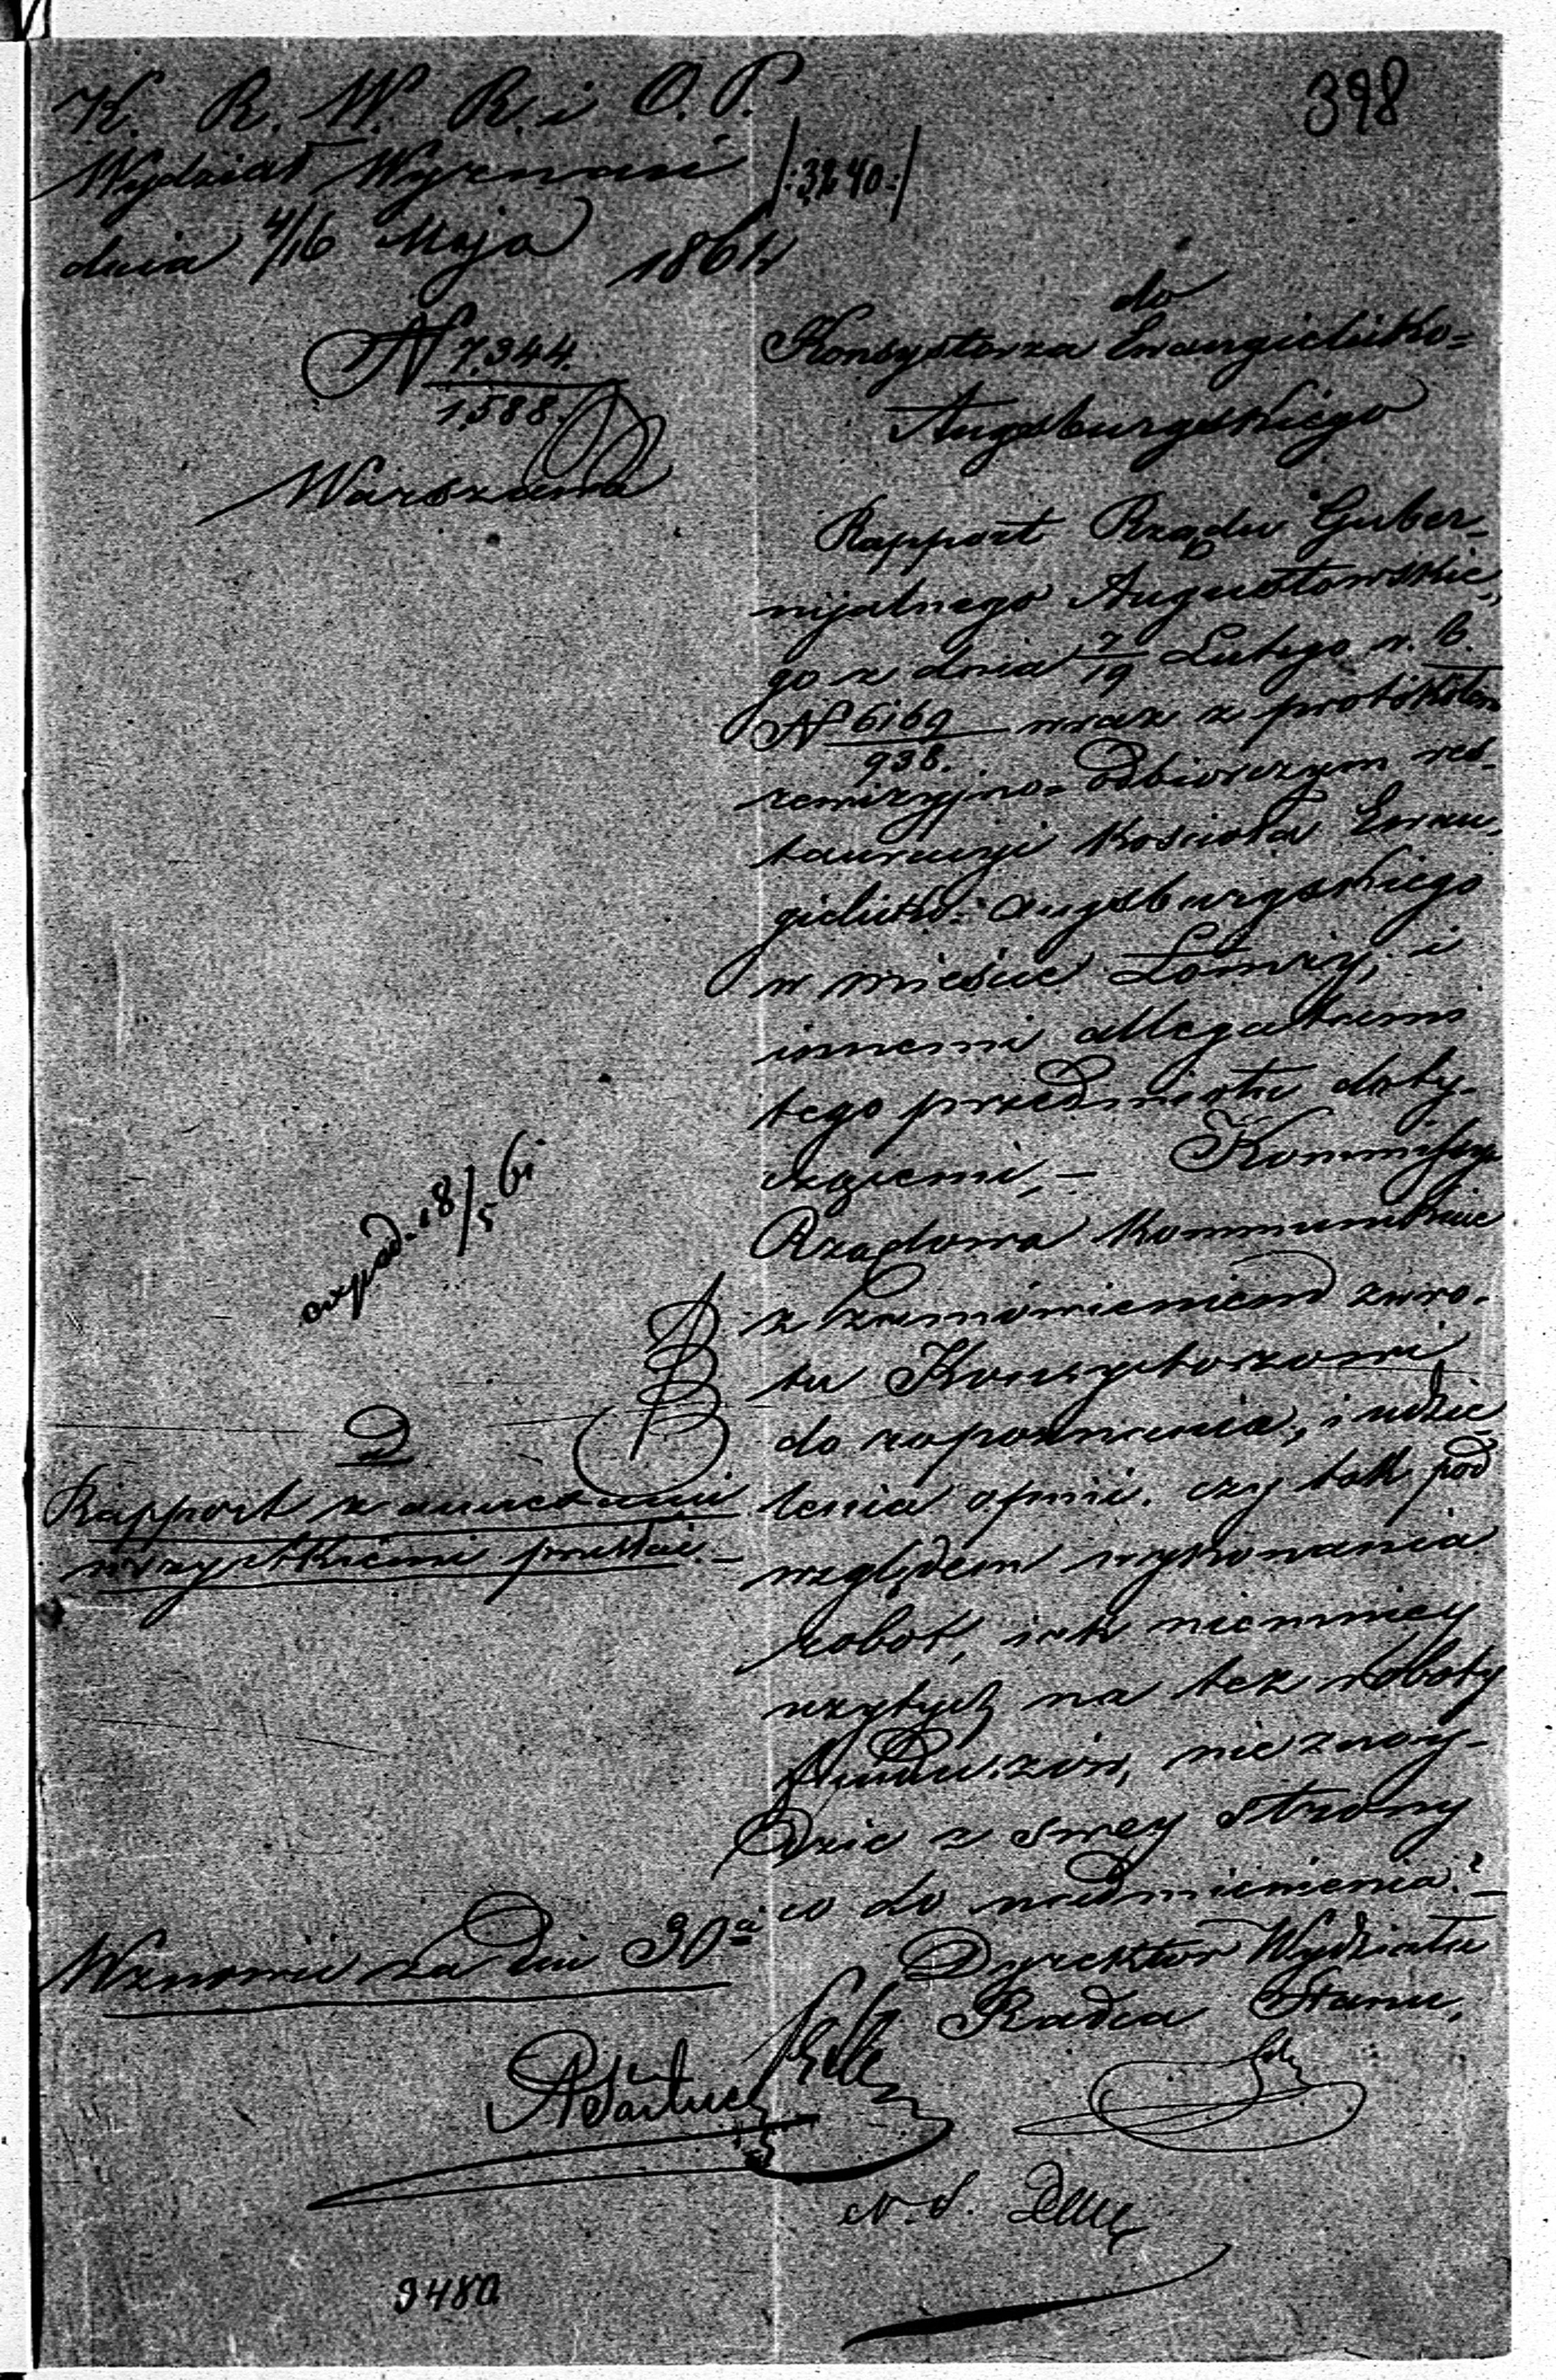 398
K. R. W. R. i O. P.
Wydział Wyznań /:3240:/
dnia 4/16 Maja 1861 r
N 7344.
1588.
Warszawa
do
Konsystorza Ewangielicko=
Augsburgskiego
Rapport Rządu Guber-
nijalnego Augustowskie-
go z dnia 7/19 Lutego r. b.
N 6169 wraz z protokółem
938.
rewizyjno= odbiorczym res-
tauracyi Kościoła Ewan-
gielicko= Augsburgskiego
w mieście Łomży, i
innemi allegatami
tego przedmiotu doty-
czącemi, – Kommissya
Rządowa kommunikuie
z zamówieniem zwro-
tu Konsystorzowi
do rozpoznania, i udzie-
lenia opinii. czy tak pod
względem wykonania
robot, iak niemniey
użytych na też roboty
funduszów, nie znay-
dzie z swey strony
co do nadmienienia. –
exped. 18/5 61
D
Rapport z annexami
wszystkiemi przesłać. –
Wznowić za dni 30
Dyrektor Wydziału
Radca Stanu,
N. S.
3480